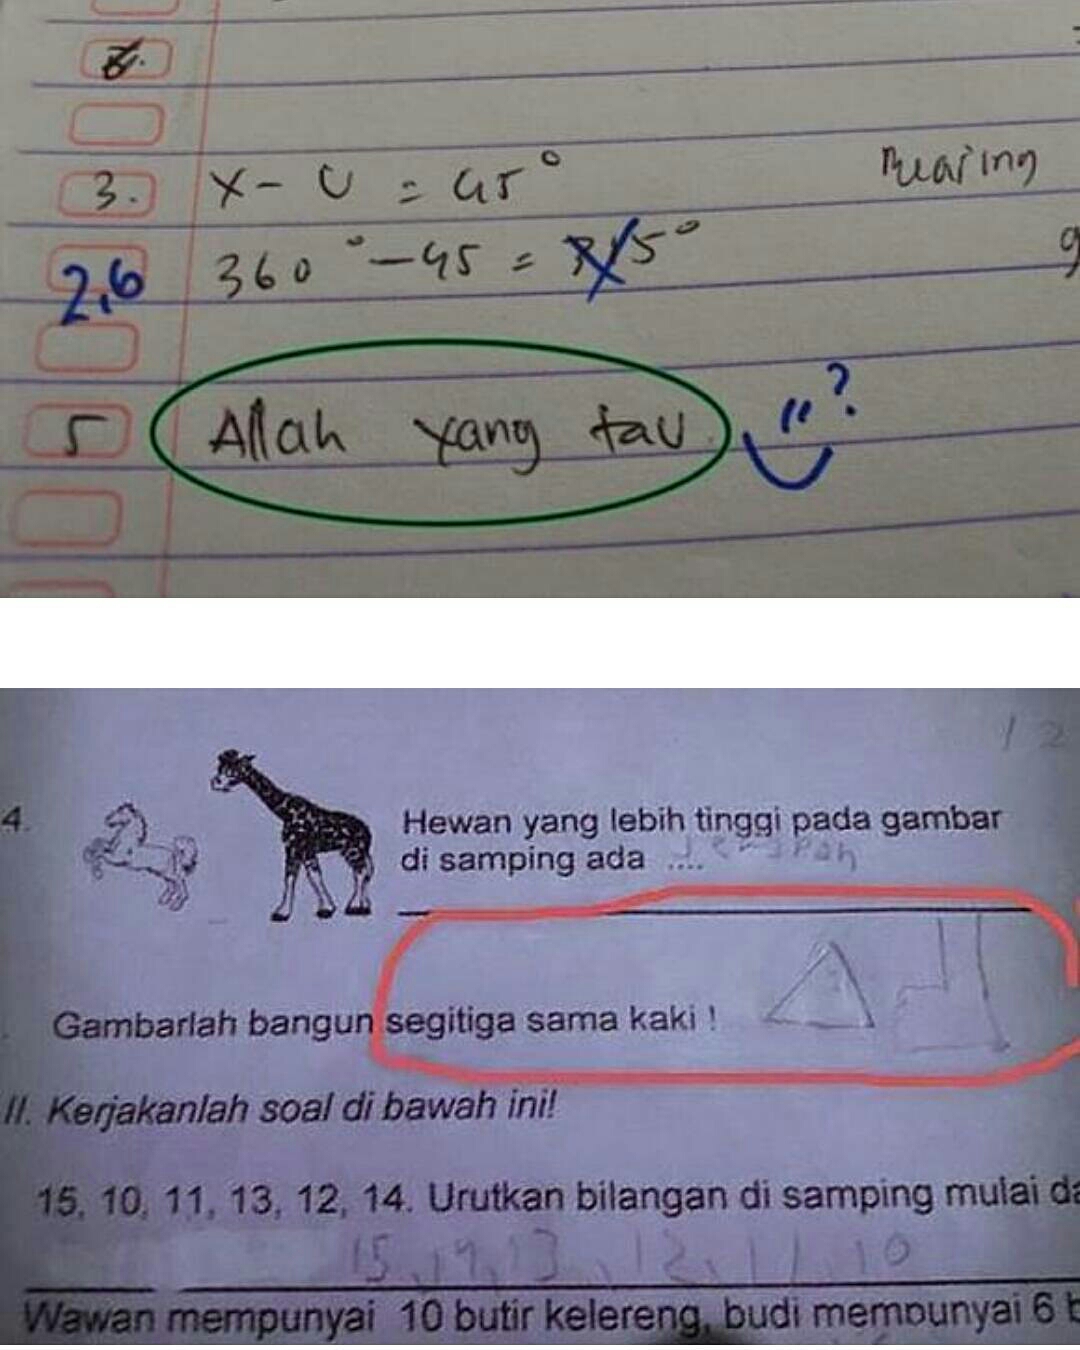 3. X - U = 45°
Bearing
2,6 360° - 45 = 315°
5 Allah yang tau ?
12
4. Hewan yang lebih tinggi pada gambar
di samping ada .... Jerapah
Gambarlah bangun segitiga sama kaki !
II. Kerjakanlah soal di bawah ini!
15, 10, 11, 13, 12, 14. Urutkan bilangan di samping mulai da
15, 14, 13, 12, 11, 10
Wawan mempunyai 10 butir kelereng, budi mempunyai 6 b